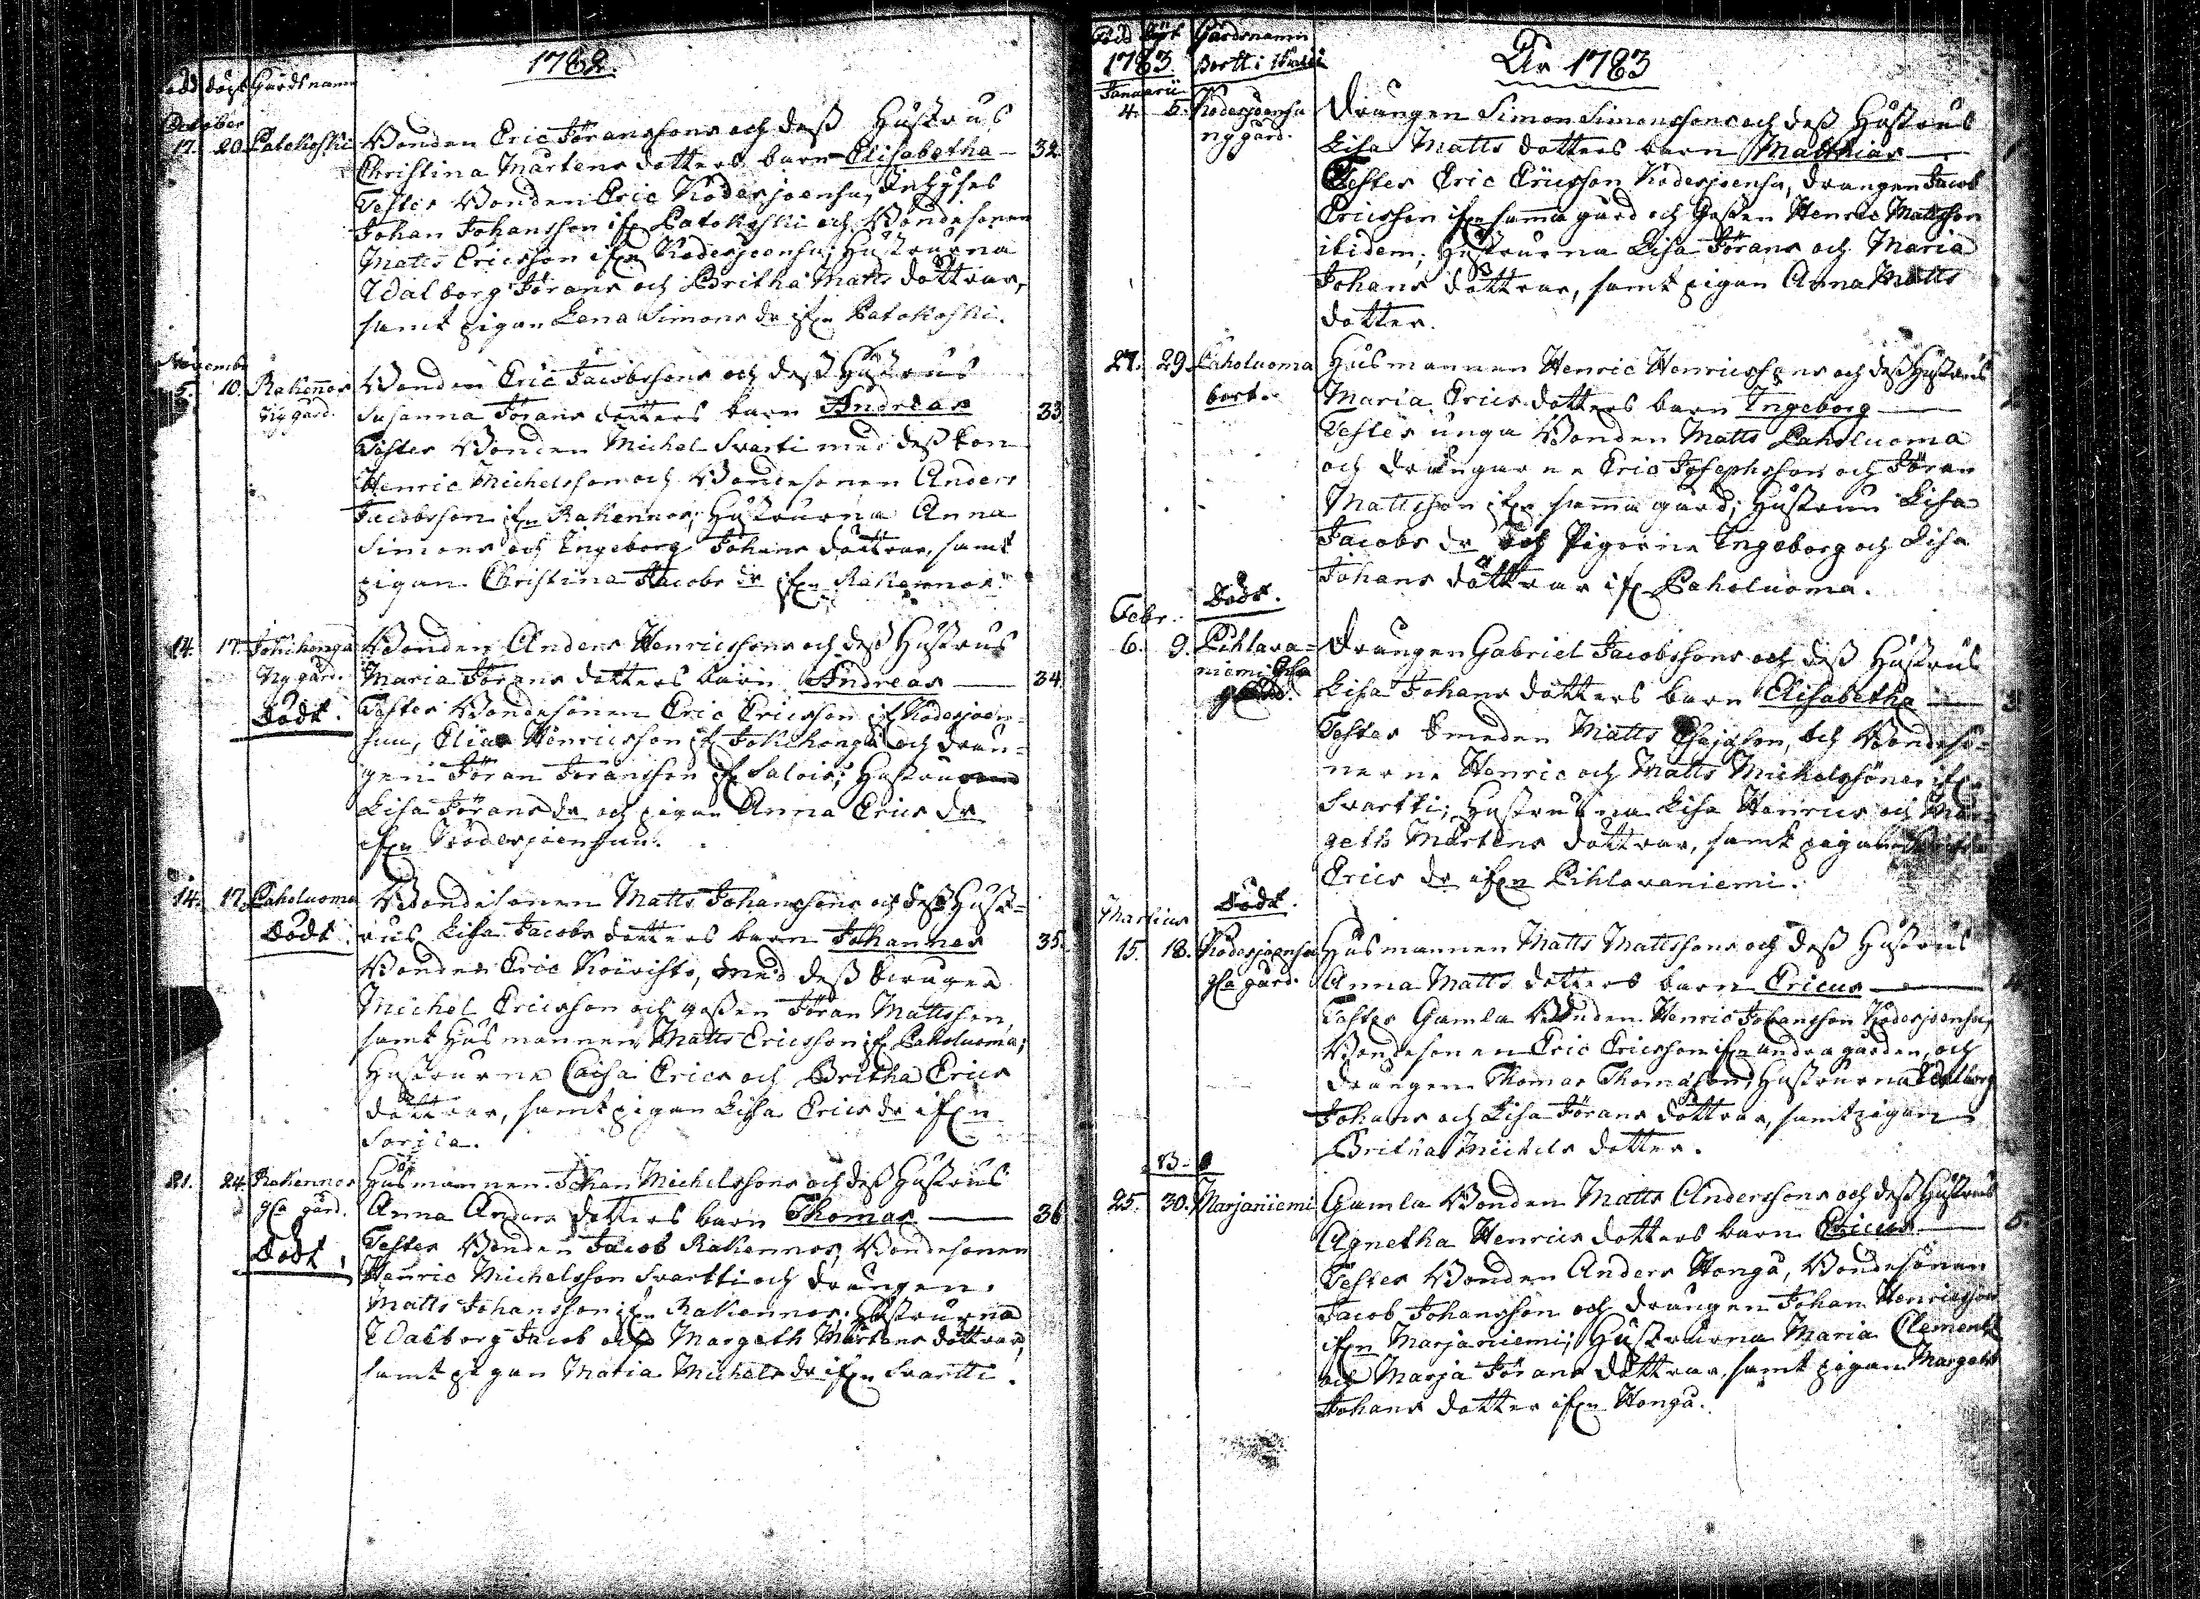 1782.
född döpt Gårdsnamn
October
17. 20. Patokoski Bonden Eric Jöranssons och deß Hustrus
Christina Mårtens dotters barn Elisabetha — 32
Testes Bonden Eric Kodesjoensu, Inhyses
Johan Johansson ifrn Patokoski och Bondesonen
Matts Ericsson ifrn Kodesjoensu; Hustrurna
Walborg Jörans och Britha Matts döttrar,
samt pigan Lena Simons dr ifrn Patokoski.
November
5. 10. Rakennos Bonden Eric Jacobssons och deß Hustrus
ny gård. Susanna Jörans dotters barn Andreas 33
Testes Bonden Michel Svarti med deß son
Henric Michelsson och Bondesonen Anders
Jacobsson ifrn Rakennos; Hustrurna Anna
Simons och Ingeborg Johans döttrar, samt
pigan Christina Jacobs dr ifrn Rakennos.
14. 17. Jokihonga Bonden Anders Henricssons och deß Hustrus
Ny gård. Maria Jörans dotters barn Andreas — 34
Dödt. Testes Bondesonen Eric Ericsson if Kodesjoen-
suu, Elias Henricsson if Jokihonga och drän-
gen Jöran Jöransson if Salois; Hustrun
Lisa Jörans dr och pigan Anna Erics dr
ifrn Kodesjoensuu.
14. 17. Paholuoma Bondesonen Matts Johanssons och deß Hust-
Dödt. rus Lisa Jacobs dotters barn Johannes 35.
Bonden Eric Koivisto, med deß drängen
Michel Ericsson och goßen Jöran Mattsson,
samt Husmannen Matts Ericsson if Paholuoma;
Hustrurna Caisa Erics och Britha Erics
döttrar, samt pigan Lisa Erics dr ifrn
Sorila.
21. 24. Rakennos Husmannen Johan Michelssons och deß Hustrus
gla gård. Anna Anders dotters barn Thomas — 36
Dödt. Testes Bonden Jacob Rakennos, Bondesonen
Henric Michelsson Svartti och drängen
Matts Johansson ifrn Rakennos; Hustrurna
Walborg Jacob och Margeth Mårtens döttrar,
samt pigan Maria Michels dr ifrn Svartti.
Född Döpt Gårdsnamn
1783. År 1783
Januarii
4. 5. Kodesjoensu Drängen Simon Simonssons och deß Hustrus
ny gård. Lisa Matts dotters barn Matthias — 1
Testes Eric Ericsson Kodesjoensu, drängen Jacob
Ericsson ifrn samma gård och Goßen Henric Mattsson
ibidem; Hustrurna Lisa Jörans och Maria
Johans döttrar, samt pigan Anna Matts
dotter.
27. 29. Paholuoma Husmannen Henric Henricssons och deß Hustrus
bort. Maria Erics dotters barn Ingeborg —
Testes unga Bonden Matts Paholuoma
och drängarne Eric Josephsson och Jöran
Mattsson ifrn samma gård; Hustrun Lisa
Jacobs dr och Pigorne Ingeborg och Lisa
Johans döttrar if Paholuoma.
Febr. Dödt.
6. 9. Pihlava- Drängen Gabriel Jacobssons och deß Hustrus
niemi gla Lisa Johans dotters barn Elisabetha — 3
gård. Testes Smeden Matts Esajasson, och Bondesö-
nerne Henric och Matts Michelssöner ifrn
Svartti; Hustrurna Lisa Henrics och Mar-
geth Mårtens döttrar, samt pigan
Erics dr ifrn Pihlavaniemi.
Martius Dödt.
15. 18. Kodesjoensu Husmannen Matts Mattssons och deß Hustrus
gla gård. Anna Matts dotters barn Ericus —
Testes Gamla Bonden Henric Johansson Kodesjoensu,
Bondesonen Eric Ericsson ifrn andra gården, och
drängen Thomas Thomasson; Hustrurna Walborg
Johans och Lisa Jörans döttrar, samt pigan
Britha Michels dotter.
25. 30. Marjaniemi Gamla Bonden Matts Anderssons och deß Hustrus
Agnetha Henrics dotters barn Ericus — 5
Testes Bonden Anders Honga, Bondesonen
Jacob Johansson och drängen Johan Henricsson
ifrn Marjaniemi; Hustrurna Maria Clements
och Marja Jörans döttrar, samt pigan Margeth
Johans dotter ifrn Honga.